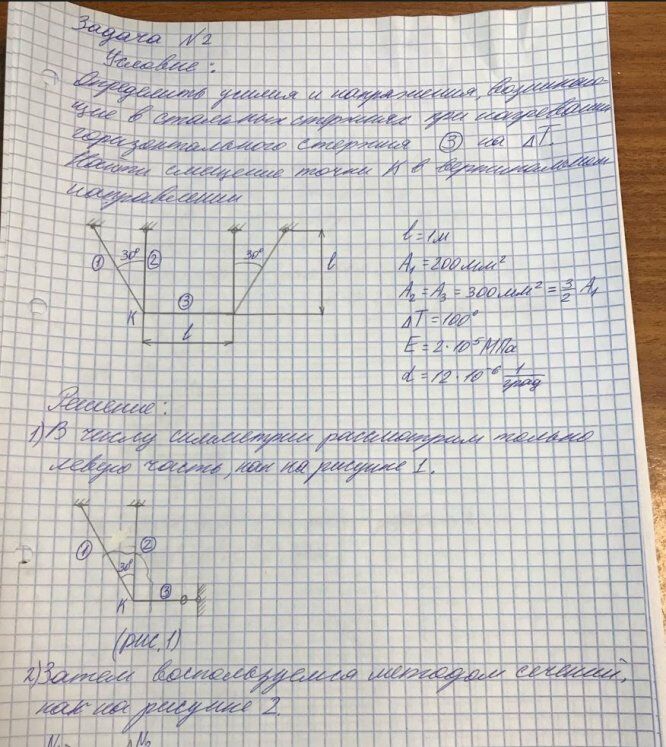 Задача №2
Условие:
Определить усилия и напряжения, возникаю-
щие в стальных стержнях при нагревании
горизонтального стержня ③ на ΔT.
Найти смещение точки K в вертикальном
направлении
① 30° ② 30° l
③
K
l
l = 1м
A₁ = 200мм²
A₂ = A₃ = 300мм² = 3/2 A₁
ΔT = 100°
E = 2·10⁵ МПа
α = 12·10⁻⁶ 1/град
Решение:
1) В силу симметрии рассмотрим только
левую часть, как на рисунке 1.
① ②
30°
③
K
(рис.1)
2) Затем воспользуемся методом сечений,
как на рисунке 2.